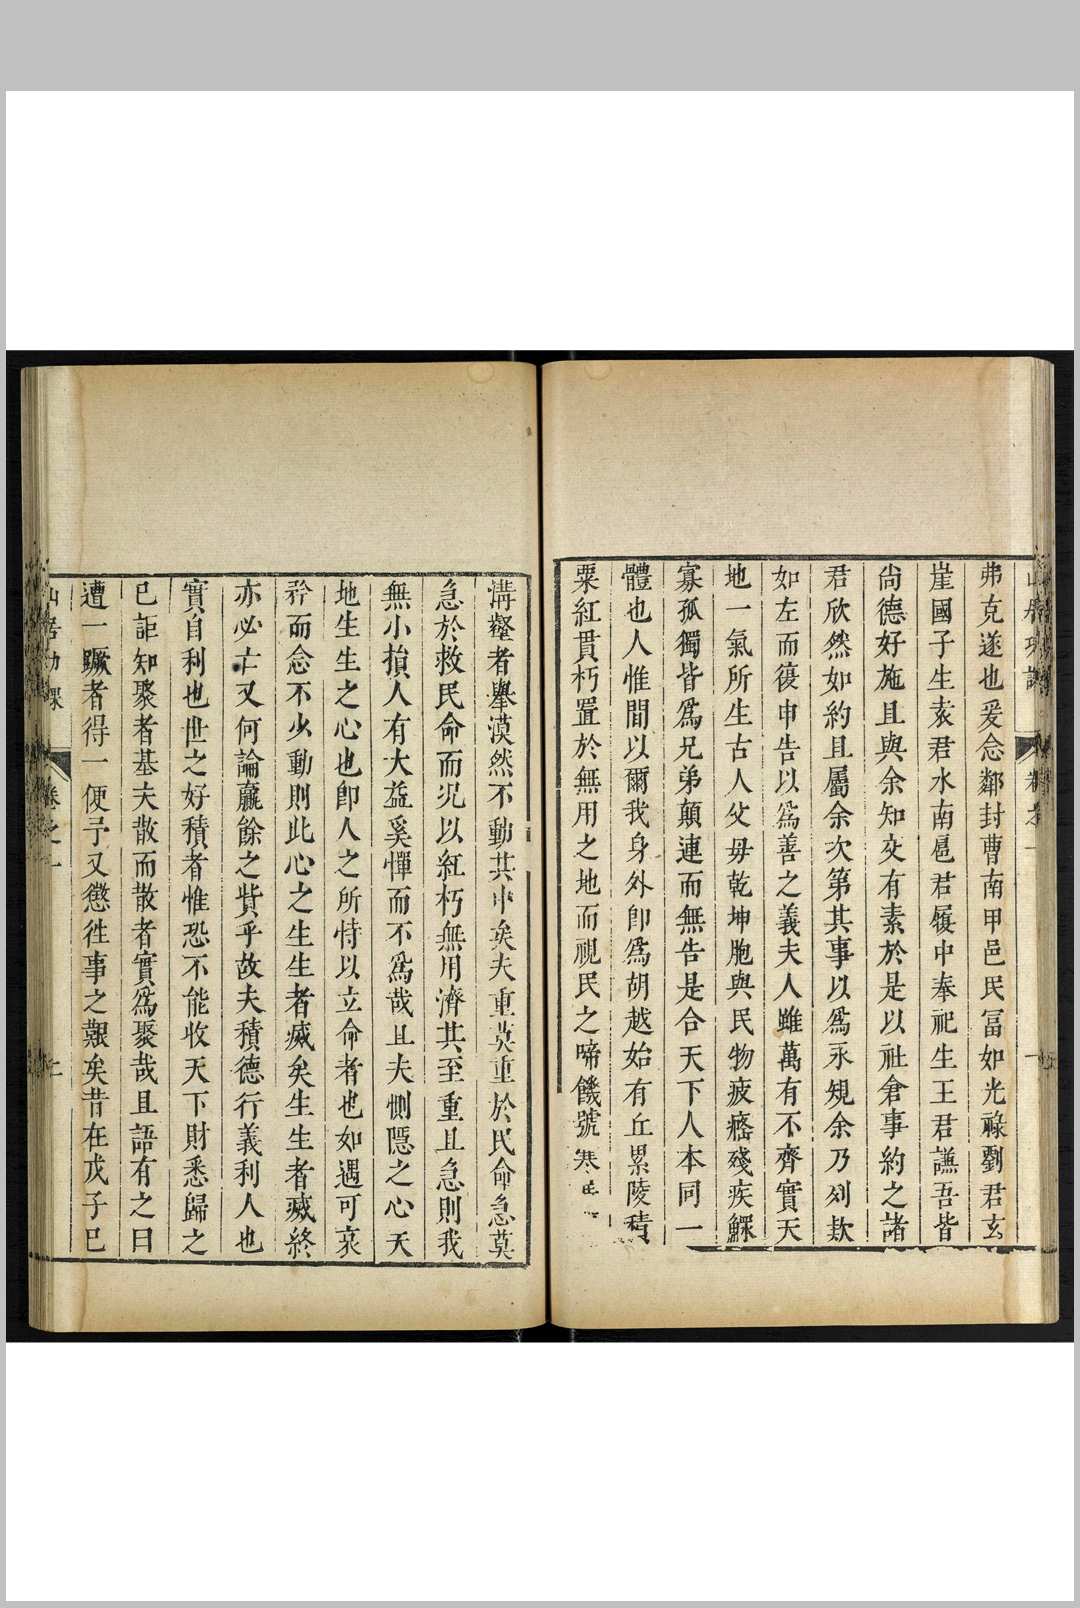 山居功課
卷之一
弗克遂也爰念鄰封曹南甲邑民冨如光祿劉君玄
崖國子生袁君水南扈君履中奉祀生王君讌吾皆
尚德好施且與余知交有素於是以社倉事約之諸
君欣然如約且屬余次第其事以爲永規余乃列欵
如左而復申告以爲善之義夫人雖萬有不齊實天
地一氣所生古人父母乾坤胞與民物疲癃殘疾鰥
寡孤獨皆爲兄弟顛連而無告是合天下人本同一
體也人惟間以爾我身外卽爲胡越始有丘累陵積
粟紅貫朽置於無用之地而視民之啼饑號寒
溝壑者舉漠然不動其中矣夫重莫重於民命急莫
急於救民命而况以紅朽無用濟其至重且急則我
無小損人有大益奚憚而不爲哉且夫惻隱之心天
地生生之心也卽人之所恃以立命者也如遇可哀
矜而念不少動則此心之生生者滅矣生生者滅終
亦必亡又何論贏餘之貲乎故夫積德行義利人也
實自利也世之好積者惟恐不能收天下財悉歸之
已詎知聚者基夫散而散者實爲聚哉且語有之曰
遭一蹶者得一便予又懲徃事之艱矣昔在戊子已
山居功課
卷之一
二